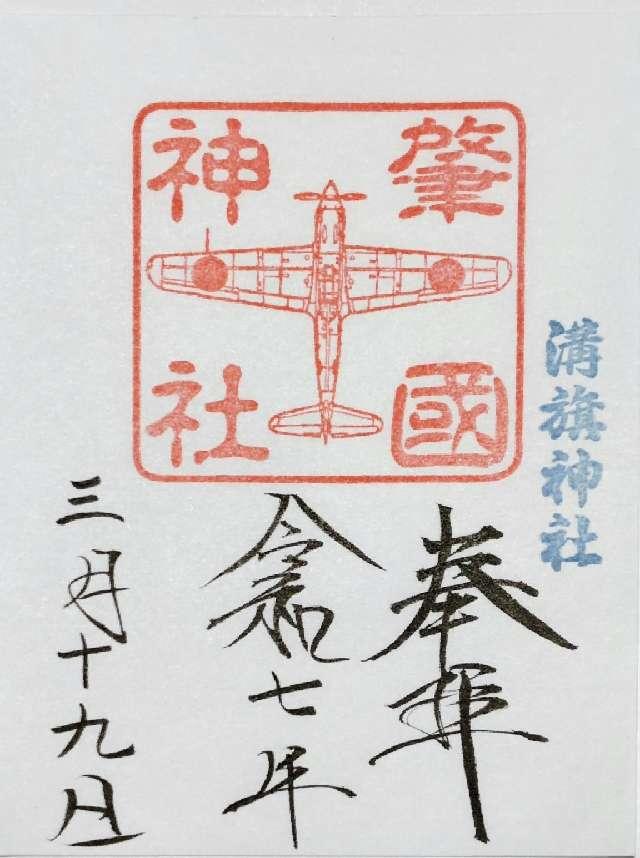 肇國
神社
溝旗神社
奉拝
令和七年
三月十九日